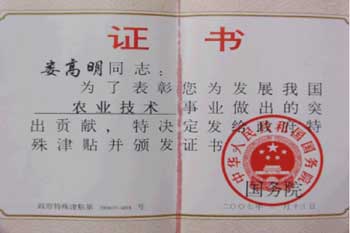 证书
娄高明同志：
为了表彰您为发展我国
农业技术 事业做出的突
出贡献，特决定发给政府特
殊津贴并颁发证书
中华人民共和国国务院
国务院
政府特殊津贴第 号
二〇〇七年 月十三日